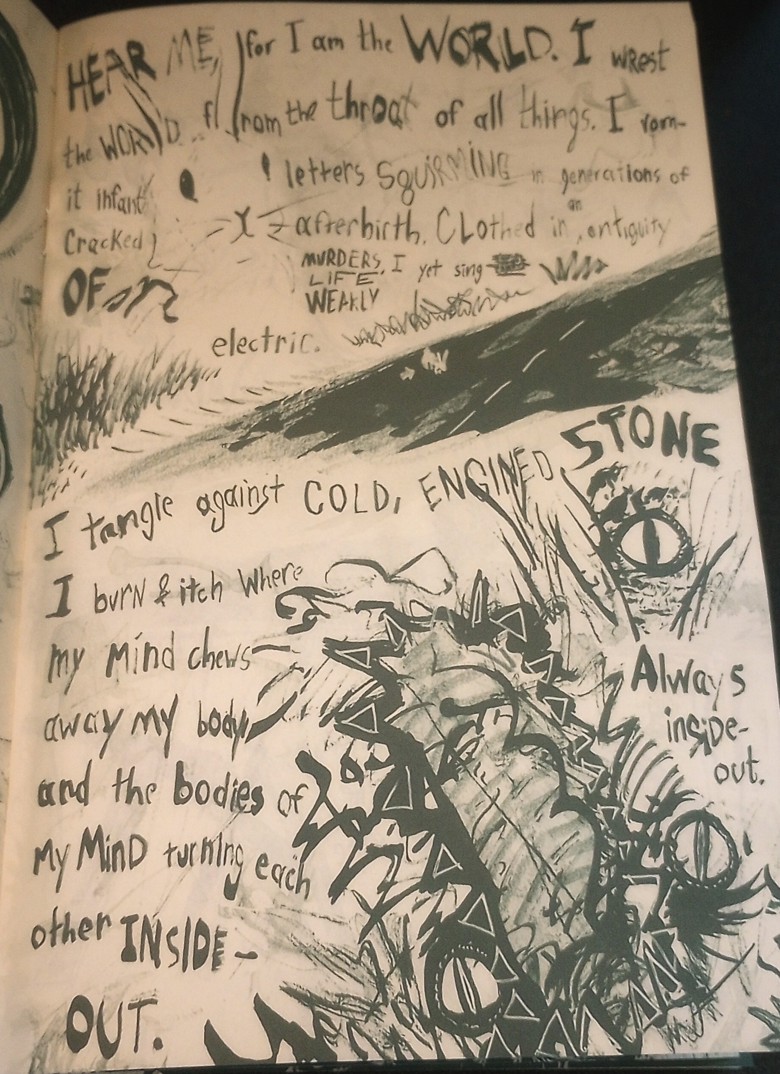 HEAR ME, for I am the WORLD. I wrest
the WORLD from the throat of all things. I vom-
it infant letters SquiRMING in generations of
Cracked afterbirth. CLothed in an antiquity
OF MURDERS, I yet sing
LIFE
WEAKLY
electric.
I tangle against COLD, ENGINED STONE
I burN & itch where
my mind chews
away my body
and the bodies of
My MinD turning each
other INSIDE-
OUT.
Always
inside-
out.